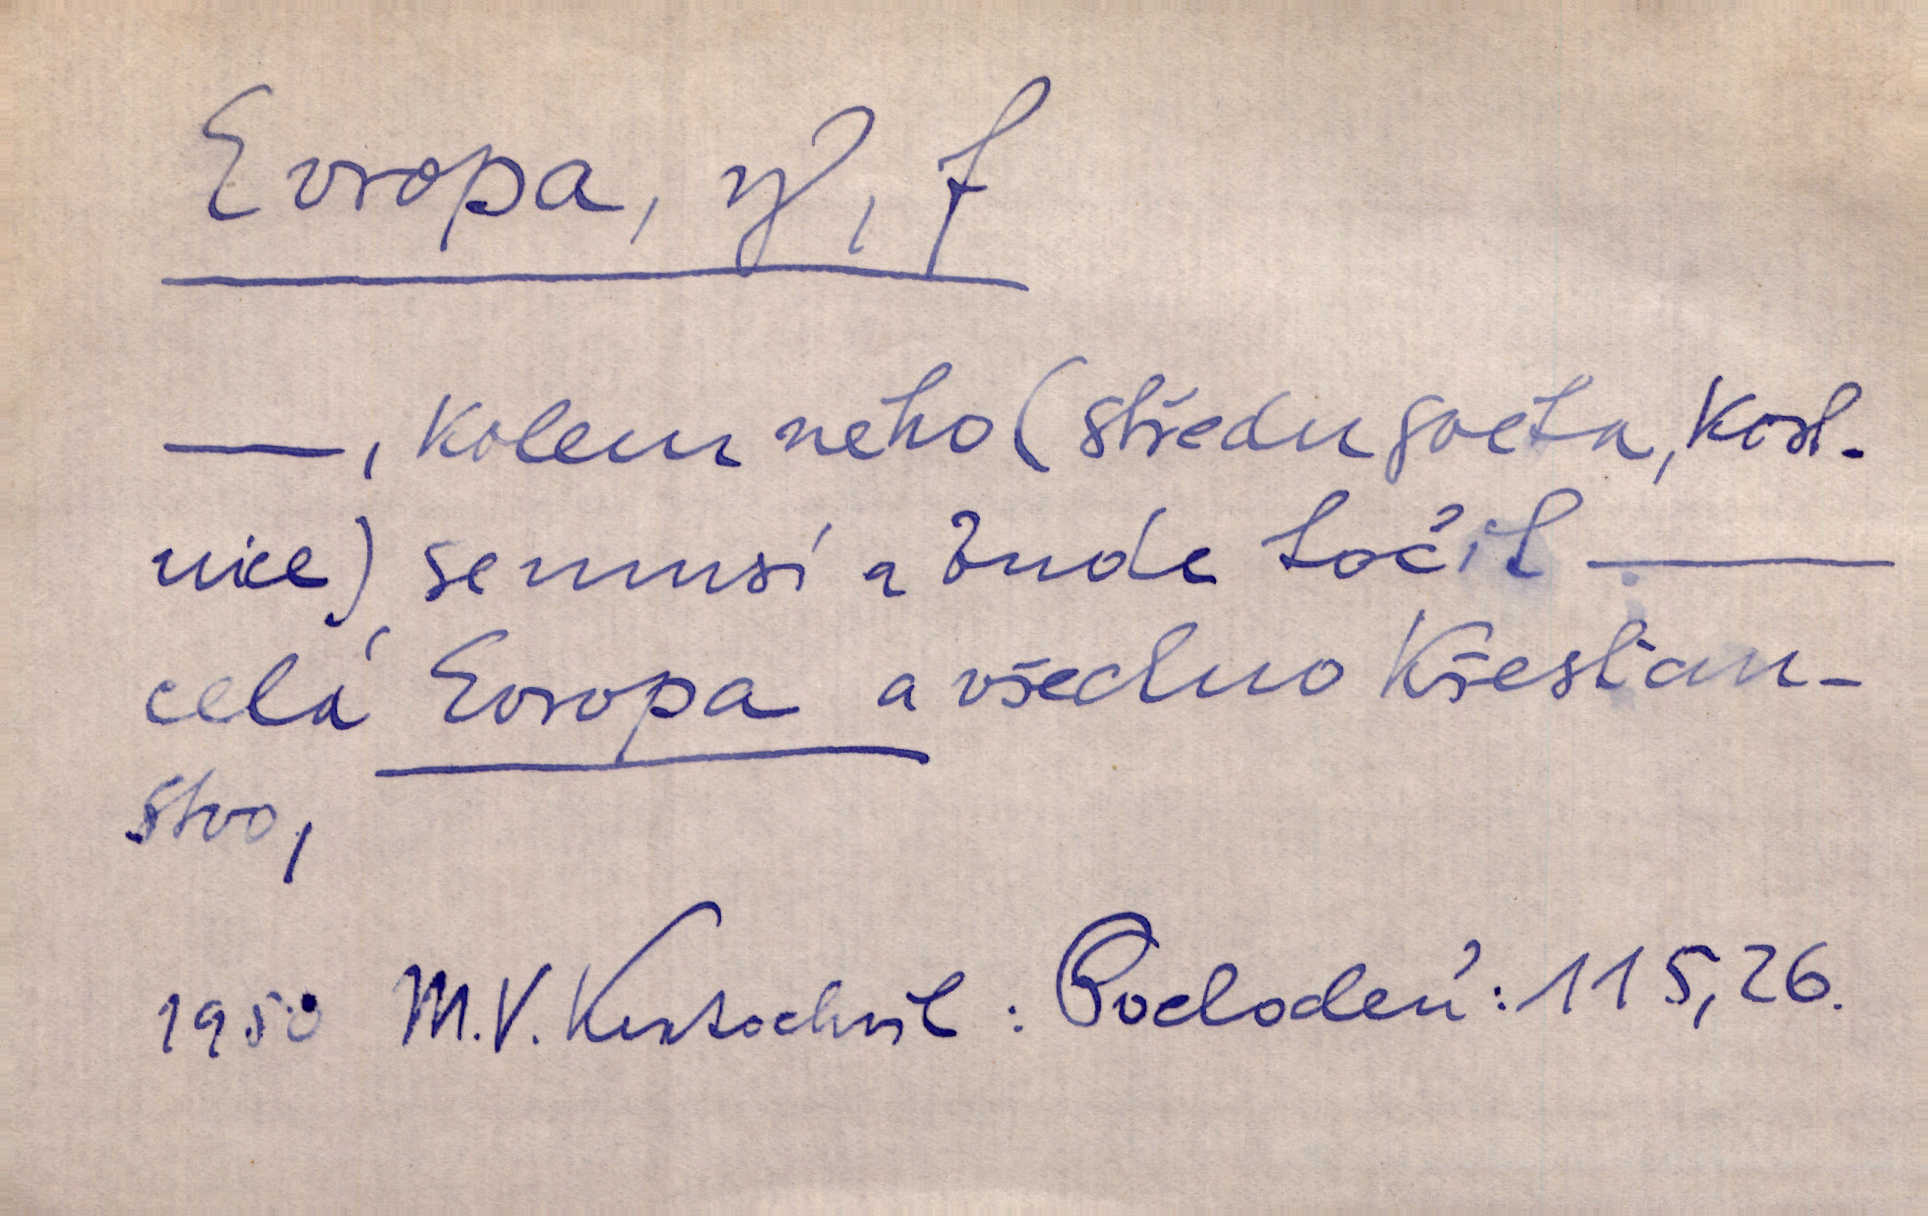 Evropa, y, f
—, kolem něho (středu světa, Kost-
nice) se musí a bude točit —
celá Evropa a všechno křesťan-
stvo,
1950 M.V. Kratochvíl : Pochodeň : 115,26.